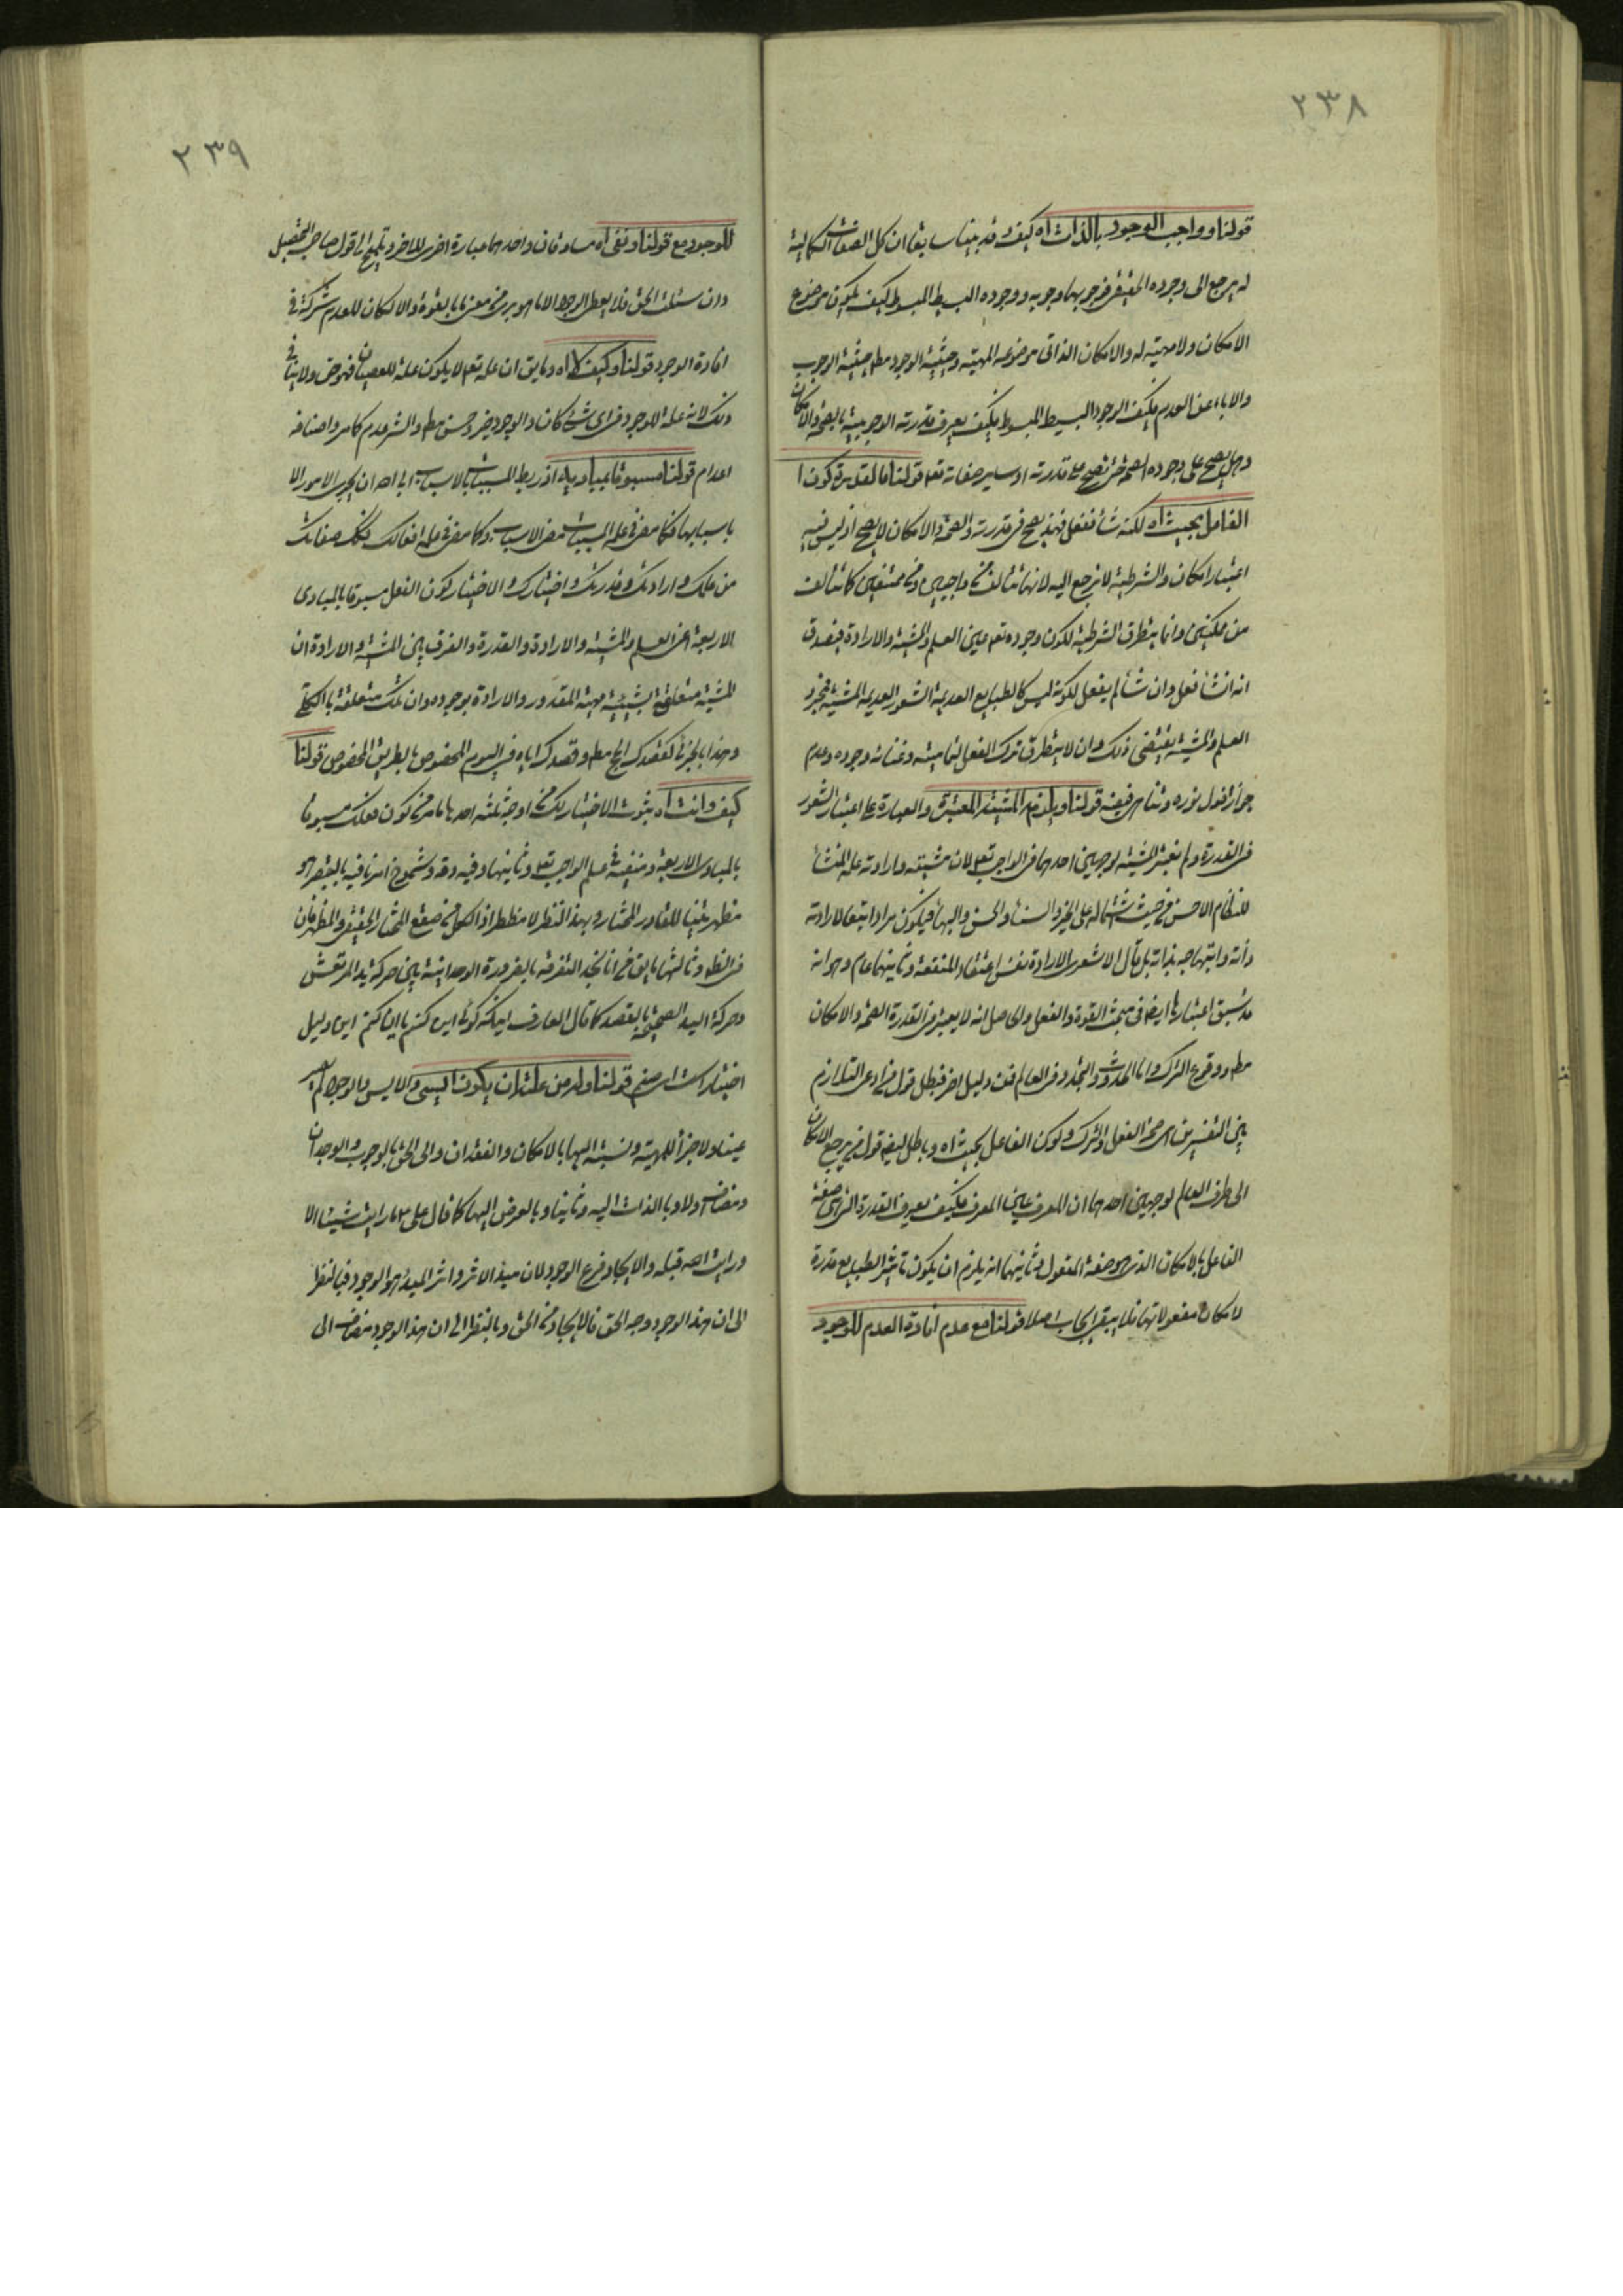 ٢٣٨
قولنا وواجب الوجود بالذات اه كيف وقد بينا سابقا ان كل الصفات الكمالية
له يرجع الى وجوده الحقيقى فوجوبها وجوبه ووجوده البسيط المبسوط كيف يكون موضوع
الامكان ولا مهية له والامكان الذاتى موضوعه المهية وحيثية الوجود مط حيثية الوجوب
والاباء عن العدم فكيف الوجود البسيط المبسوط فكيف يعرف قدرته الوجوبية بالصحة والامكان
وهل يصح على وجوده الصحة حتى تصح على قدرته او ساير صفاته تعم قولنا فالقدرة كون
الفاعل بحيث اه لكنه شاء ففعل فهذا يصح فى قدرته والصحة والامكان لا يصح اذ ليس فيه
اعتبار امكان والشرطية لا يرجع اليه لانها تتألف من واجبين ومن ممتنعين كما تتألف
من ممكنين وانما يتطرق الشرطية لكون وجوده تعم عين العلم والمشية والارادة فيصدق
انه ان شأ فعل وان شأ لم يفعل لكونه ليس كالطبايع العديمة الشعور العديمة المشية فمجرد
العلم والمشية يقتضى ذلك وان لا يتطرق ترك الفعل لتماميته وغنائه وجوده وعدم
جواز افول نوره وتناهى فيضه قولنا ويلزم المشية المعتبرة والعبارة على اعتبار الشعور
فى القدرة ولم نعتبر المشية لوجهين احدهما فى الواجب تعم لان مشيته وارادته علم المنشأ
للنظام الاحسن من حيث اشتماله على الخير والسناء والحسن والبهاء فيكون مرادا بتبع ارادته
ذاته وابتهاجه بذاته بل قال الاشعرى الارادة نفس اعتقاد المنفعة وثانيهما عام وهو انه
قد سبق اعتبارها ايضا فى مبحث القوة والفعل والحاصل انه لا يعتبر فى القدرة الصحة والامكان
مط ووقوع الترك واما الحدوث والتجدد فى العالم فمن دليل اخر فبطل قول من ادعى التلازم
بين التفسيرين اى صحة الفعل والترك وكون الفاعل بحيث اه وباطل ايضا قول من يرجع الامكان
الى طرف العالم لوجهين احدهما ان المعرف عين المعرف فكيف يعرف القدرة التى هى صفة
الفاعل بالامكان الذى هو صفة المفعول وثانيهما انه يلزم ان يكون تاثير الطبايع قدرة
لامكان مفعولاتها فلا يبقى ايجاب اصلا قولنا مع عدم افادة العدم للوجود
٢٣٩
للوجود مع قولنا ونفى اه مساوقان واحدهما عبارة اخرى للاخر وتلميح الى قول صاحب التحصيل
وان سئلت الحق فلا يعطى الوجود الا ما هو برىء من معنى ما بالقوة والا لكان للعدم شركة فى
افادة الوجود قولنا وكيف لا اه وما يق ان علمه تعم لا يكون علة للعصيان فهو حق ولا ينافى
ذلك لانه علة للوجود فى اى شئ كان والوجود خير وحسن مط والشر عدم كما مر واضافه
اعدام قولنا مسبوقا بمباديه اذ ربط المسببات بالاسباب ابى الله ان يجرى الامور الا
باسبابها فكما مضى فى علمه المسببات مضى الاسباب وكما مضى فى علمه افعالك فكك صفاتك
من علمك وارادتك وقدرتك واختيارك والاختيار كون الفعل مسبوقا بالمبادى
الاربعة اعنى العلم والمشية والارادة والقدرة والفرق بين المشية والارادة ان
المشية متعلقة بشيئية مهية المقدور والارادة بوجوده وان تلك متعلقة بالكلى
وهذا بالجزئى كقصدك الحج مط وقصدك اياه فى اليوم المخصوص بالطريق المخصوص قولنا
كيف وانت اه ثبوت الاختيار لك من اوجه ثلثه احدها ما مر من كون فعلك مسبوقا
بالمبادى الاربعة ومنبعثة فى علم الواجب تعم وثانيها وفيه دقة وشموخ انه ما فيه بالبصر هو
مظهرية للقادر المختار وبهذا النظر لا مضطر اذ الكل من صقع المختار الحقيقى والمظهر فان
فى الظاهر وثالثها ما يق من انا نجد التفرقة بالضرورة الوجدانية بين حركة يد المرتعش
وحركة اليد الصحيحة بالقصد كما قال العارف اينكه گوئى اين كنم يا آن كنم اين دليل
اختيار است اى صنم قولنا وله من علته ان يكون ايس والايس والوجود ليس
عينا ولا جزأ للمهية ونسبته اليها بالامكان والفقدان والى الحق بالوجوب والوجدان
ومضاف اولا وبالذات اليه وثانيا وبالعرض اليها كما قال على ما رايت شيئا الا
ورايت الله قبله والايجاد فرع الوجود لان مبدأ الاثر واثر المبدأ هو الوجود فبالنظر
الى ان هذا الوجود وجه الحق فالايجاد من الحق وبالنظر الى ان هذا الوجود مضاف الى